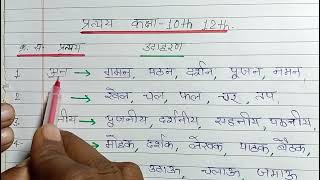 प्रत्यय कक्षा-10th 12th.
क्र. सं. प्रत्यय उदाहरण
1 अन → गमन, पठन, दर्शन, पूजन, नमन
2 → खेल, चल, फल,
नीय → पूजनीय, दर्शनीय, सहनीय, पठनीय
4 → मोहक, दर्शक, लेखक, पाठक, बैठक
उठाऊ, चलाऊ, जमाऊ